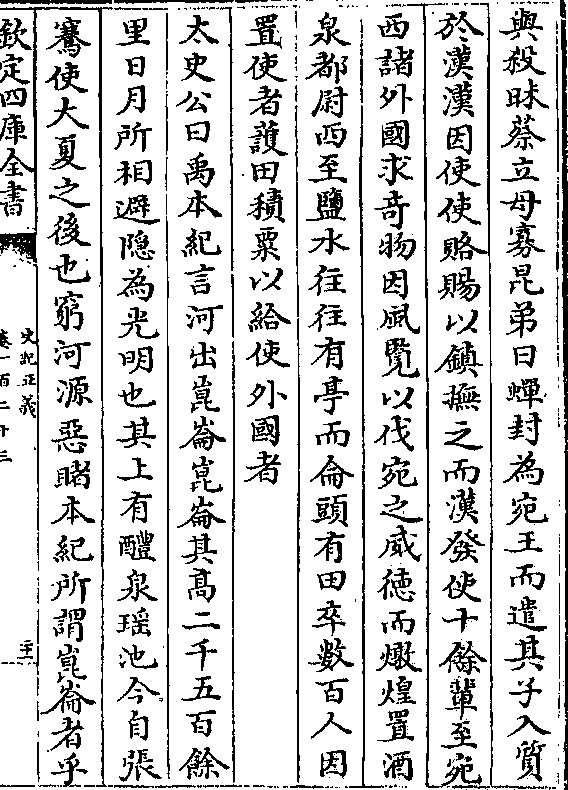 與殺昧蔡立毋寡昆弟曰蟬封為宛王而遣其子入質
於漢漢因使使賂賜以鎮撫之而漢發使十餘輩至宛
西諸外國求奇物因風覧以伐宛之威徳而燉煌置酒
泉都尉西至鹽水往往有亭而侖頭有田卒數百人因
置使者䕶田積粟以給使外國者
太史公曰禹本紀言河出崑崙崑崙其髙二千五百餘
里日月所相避隠為光明也其上有醴泉瑶池今自張
騫使大夏之後也窮河源惡睹本紀所謂崑崙者乎
欽定四庫全書
史記正義
卷一百二十三